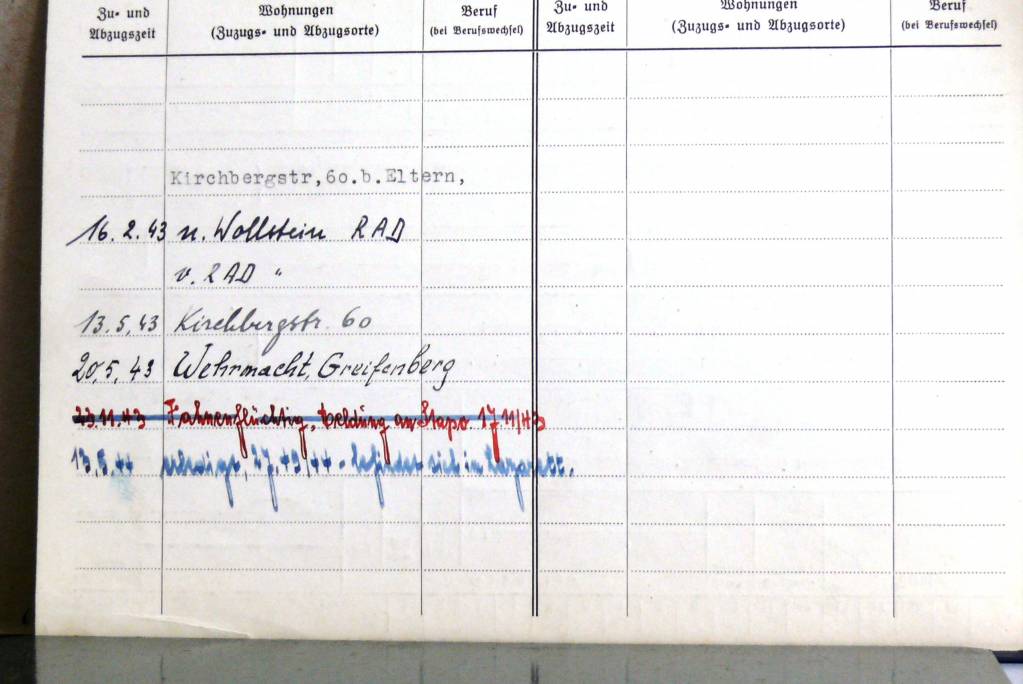 Zu- und Abzugszeit
Wohnungen
(Zuzugs- und Abzugsorte)
Beruf
(bei Berufswechsel)
Zu- und Abzugszeit
Wohnungen
(Zuzugs- und Abzugsorte)
Beruf
(bei Berufswechsel)
Kirchbergstr,60.b.Eltern,
16.2.43 n. Wollstein RAD
v. RAD "
13.5.43 Kirchbergstr. 60
20.5.43 Wehrmacht, Greifenberg
23.11.43 Fahnenflüchtig, Meldung an Stapo 17/11/43
13.5.44 befindet sich im Lazarett.